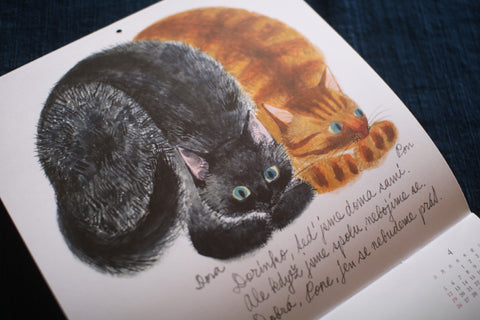 Dora
Pon
Dorinko, teď jsme doma samí.
Ale když jsme spolu, nebojíme se.
Dobrá, Pone, jen se nebudeme prát.
4